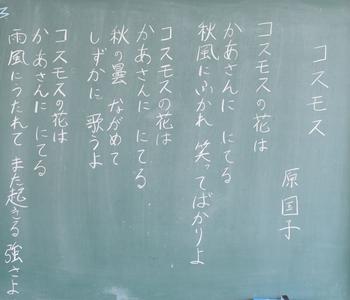 コスモス
原国子
コスモスの花は
かあさんに にてる
秋風にふかれ 笑ってばかりよ
コスモスの花は
かあさんに にてる
秋の曇 ながめて
しずかに 歌うよ
コスモスの花は
かあさんに にてる
雨風にうたれて また起きる 強さよ